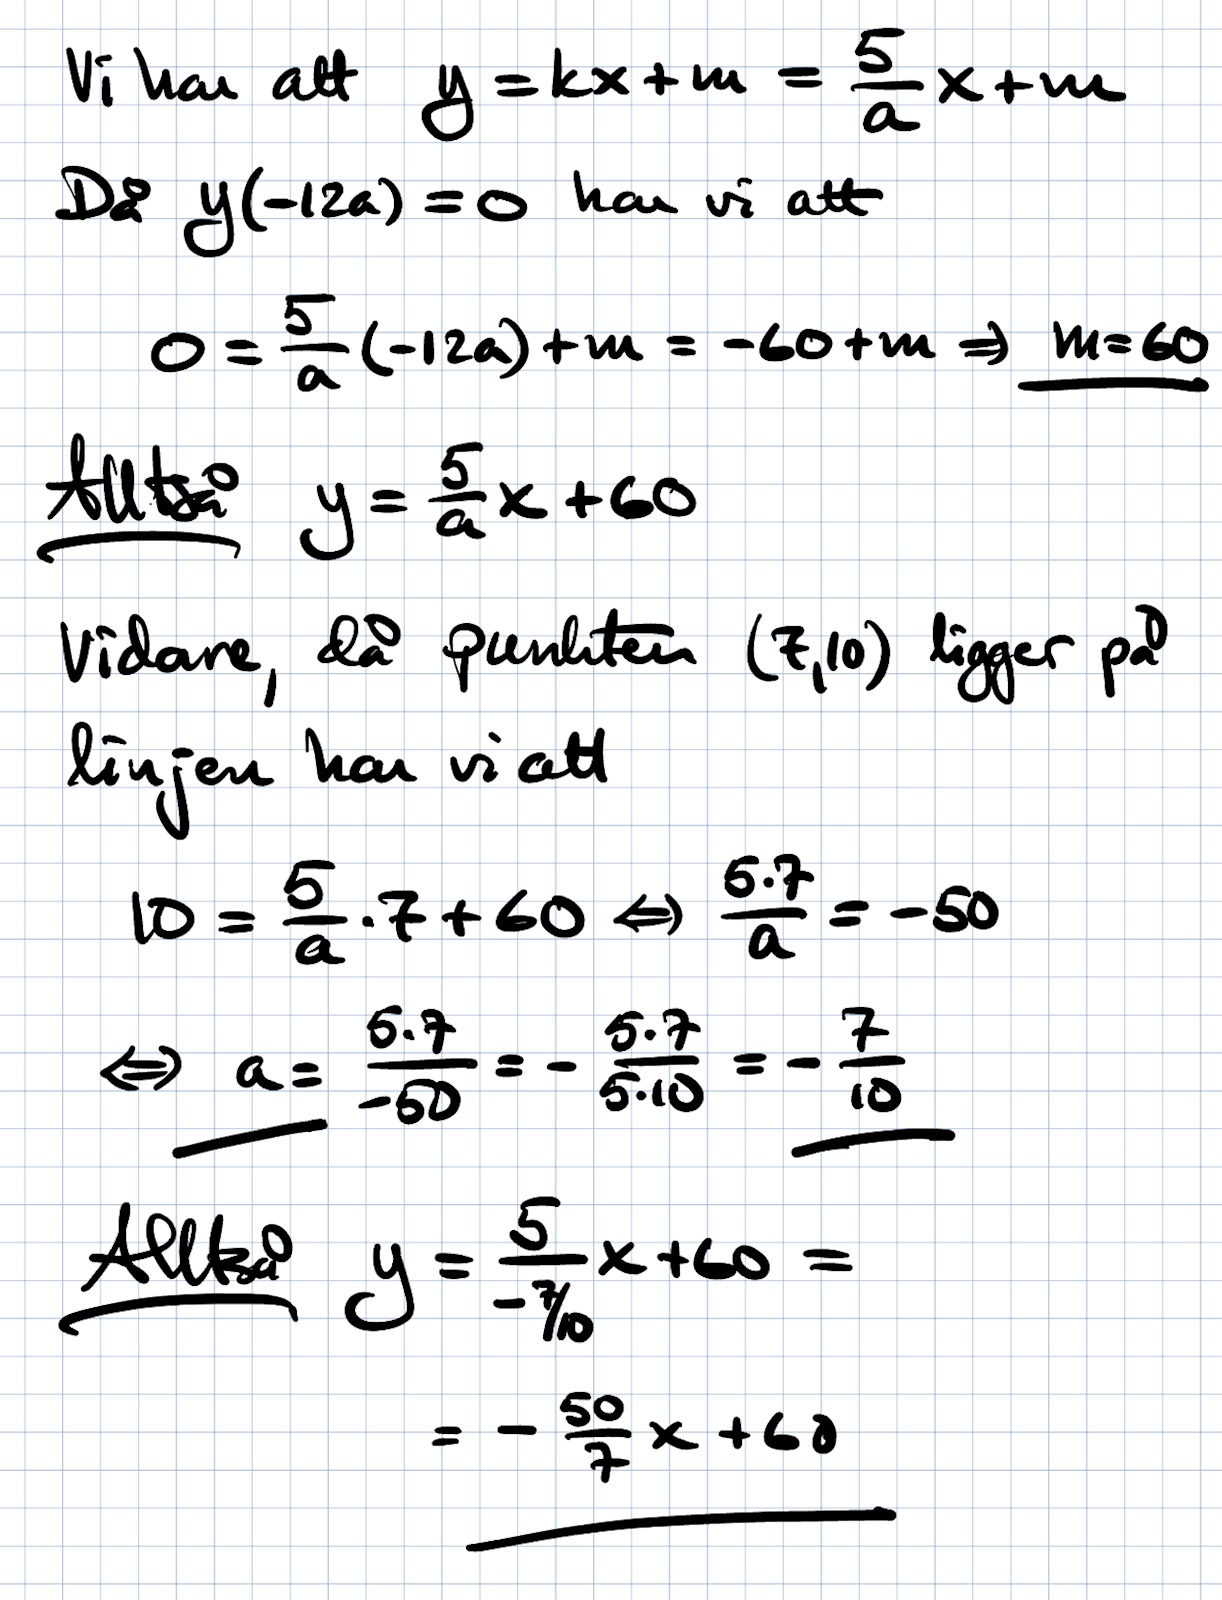 Vi har att y = kx + m = 5/a x + m
Då y(-12a) = 0 har vi att
0 = 5/a (-12a) + m = -60 + m ⇒ m = 60
Alltså y = 5/a x + 60
Vidare, då punkten (7,10) ligger på
linjen har vi att
10 = 5/a · 7 + 60 ⇔ 5·7/a = -50
⇔ a = 5·7/-50 = - 5·7/5·10 = - 7/10
Alltså y = 5/-7/10 x + 60 =
= - 50/7 x + 60